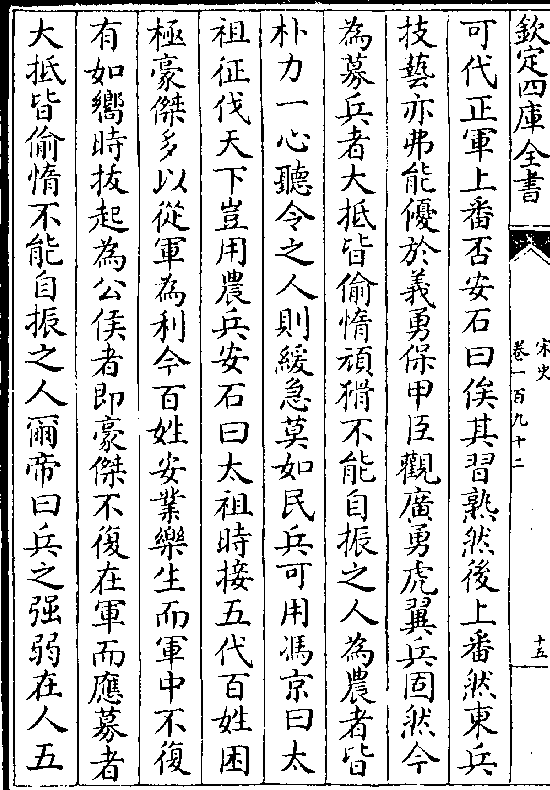 欽定四庫全書
宋史
卷一百九十二
十五
可代正軍上番否安石曰俟其習熟然後上番然東兵
技藝亦弗能優於義勇保甲臣觀廣勇虎翼兵固然今
為募兵者大抵皆偷惰頑猾不能自振之人為農者皆
朴力一心聽令之人則緩急莫如民兵可用馮京曰太
祖征伐天下豈用農兵安石曰太祖時接五代百姓困
極豪傑多以從軍為利今百姓安業樂生而軍中不復
有如嚮時拔起為公侯者即豪傑不復在軍而應募者
大抵皆偷惰不能自振之人爾帝曰兵之强弱在人五